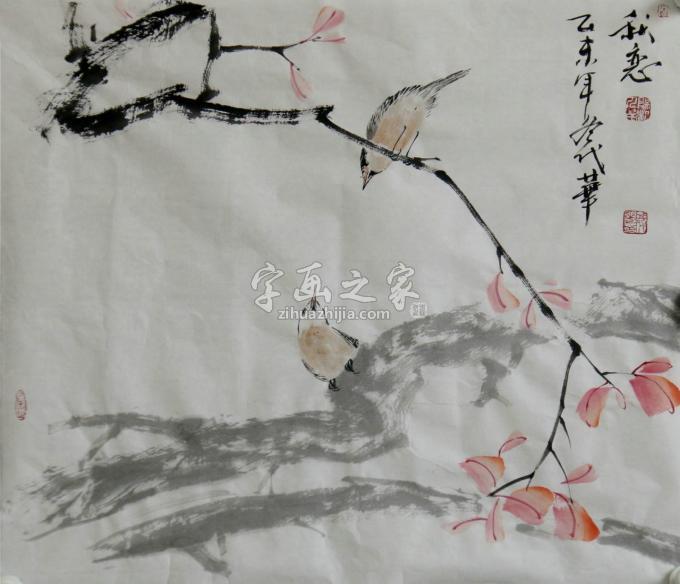 秋恋
乙未年冬代華
字画之家
zihuazhijia.com